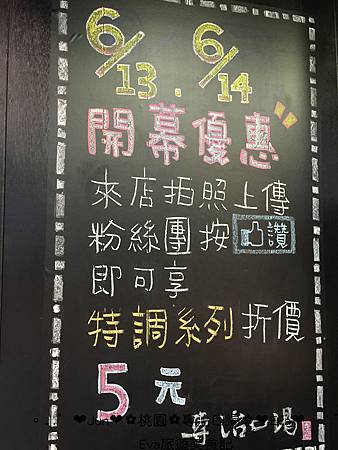 6/13 . 6/14
開幕優惠
來店拍照上傳
粉絲團按讚
即可享
特調系列折價
5元
Eva旅遊美食記